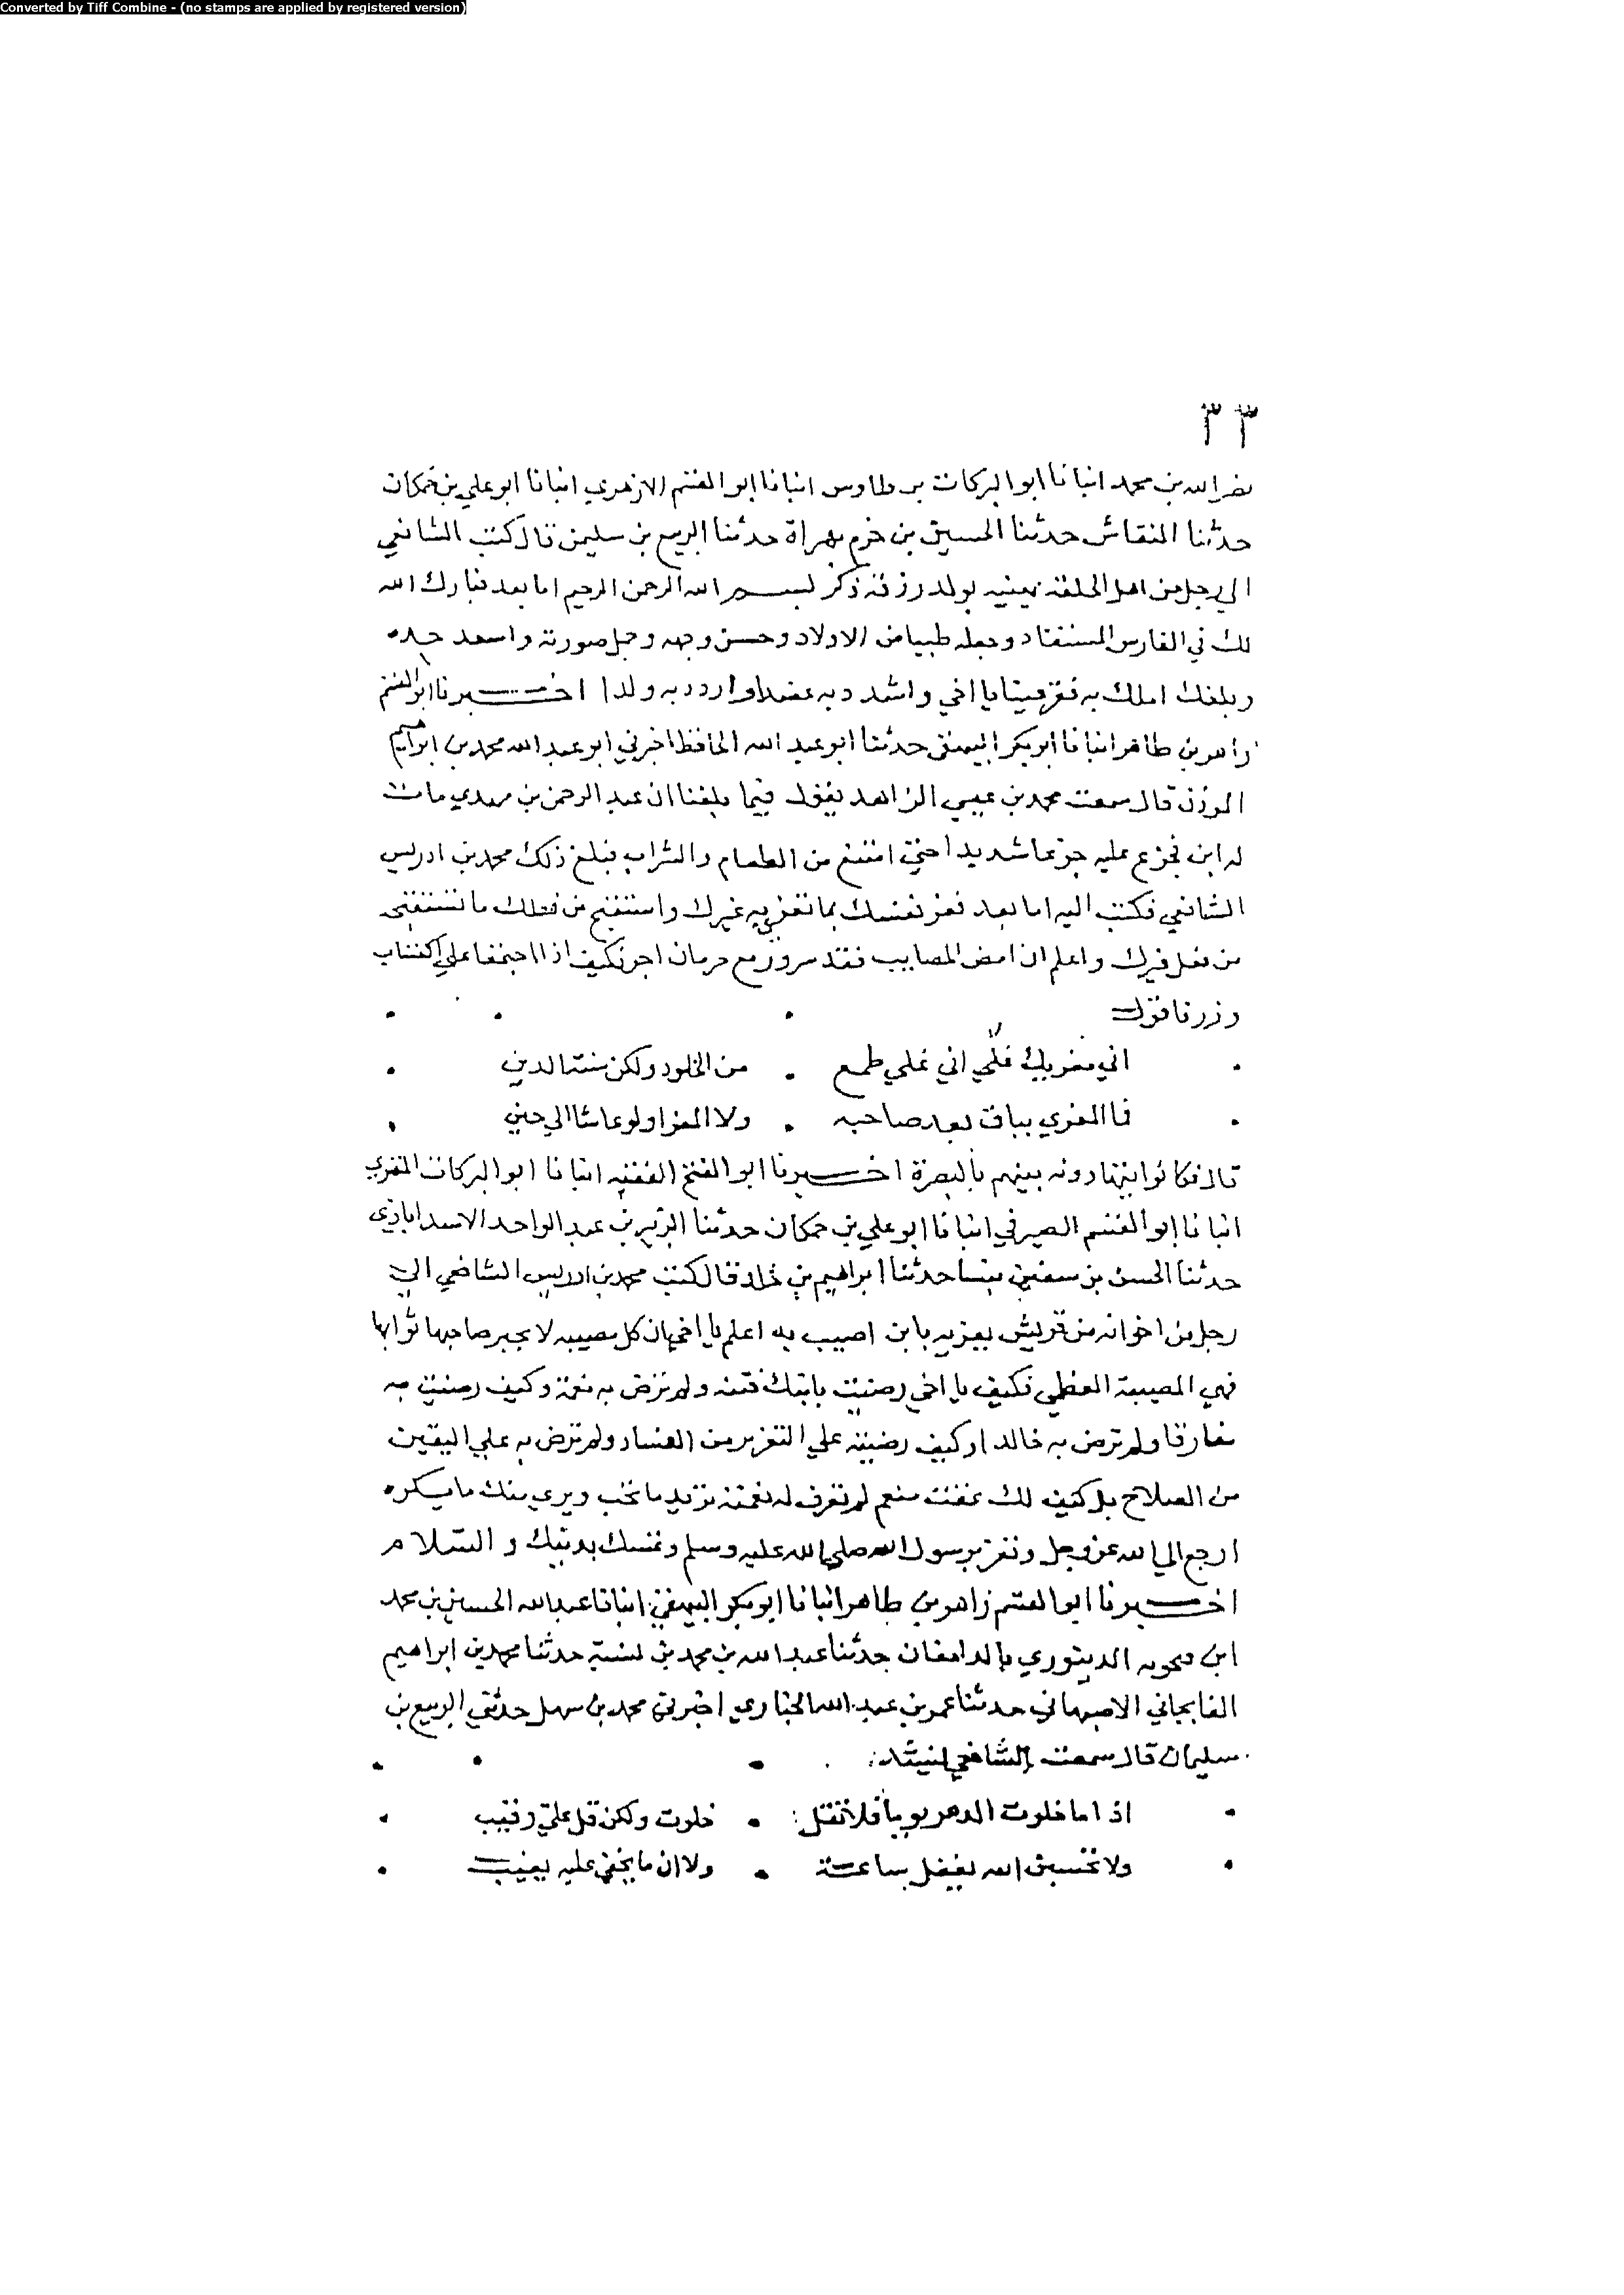 Converted by Tiff Combine - (no stamps are applied by registered version)
٣٣
نصر الله بن محمد انبانا ابو البركات بن طاوس انبانا ابو القسم الازهري انبانا ابو علي بن حمكان
حدثنا النقاش حدثنا الحسين بن خرم بهراة حدثنا الربيع بن سليمن قال كتب الشافعي
الي رجل من اهل الحلقة يهنيه بولد رزقه ذكر بسم الله الرحمن الرحيم اما بعد فبارك الله
لك في الفارس المستفاد وجعله طيبا من الاولاد وحسن وجهه وجمل صورته واسعد جده
وبلغك املك به فقر عينا يا اخي واشدد به عضدا واردد به ولدا اخبرنا ابو القسم
زاهر بن طاهر انبانا ابو بكر البيهقي حدثنا ابو عبد الله الحافظ اخبرني ابو عبد الله محمد بن ابراهيم
الموذن قال سمعت محمد بن عيسي الزاهد يقول فيما بلغنا ان عبد الرحمن بن مهدي مات
له ابن فجزع عليه جزعا شديدا حتي امتنع من الطعام والشراب فبلغ ذلك محمد بن ادريس
الشافعي فكتب اليه اما بعد فعز نفسك بما تعزي به غيرك واستقبح من فعلك ما تستقبحه
من فعل غيرك واعلم ان امض المصايب فقد سرور مع حرمان اجر فكيف اذا اجتمعا علي اكتساب
وزر فاقول
اني معزيك لا اني علي طمع . من الخلود ولكن سنة الدين
فما المعزي بباق بعد صاحبه . ولا المعزا ولو عاشا الي حين
قال فكانوا يتهادونه بينهم بالبصرة اخبرنا ابو الفتح الفقيه انبانا ابو البركات المقري
انبانا ابو القسم الصيرفي انبانا ابو علي بن حمكان حدثنا الزبير بن عبد الواحد الاسداباذي
حدثنا الحسن بن سفين بنسا حدثنا ابراهيم بن خالد قال كتب محمد بن ادريس الشافعي الي
رجل من اخوانه من قريش يعزيه بابن اصيب به اعلم يا اخي ان كل مصيبه لا يجبر صاحبها ثوابها
فهي المصيبة العظمي فكيف يا اخي رضيت بابنك فتنه ولم ترض به نعمة وكيف رضيت به
مفارقا ولم ترض به خالدا وكيف رضيته علي التعزير من الفساد ولم ترض به علي اليقين
من الصلاح بل كيف لك بمقت منعم لم تعرف له نعمته تزيد ما تحب ويري منك ما يكره
ارجع الي الله عز وجل وتعز برسول الله صلي الله عليه وسلم وتمسك بدينك والسلام
اخبرنا ابو القسم زاهر بن طاهر انبانا ابو بكر البيهقي انبانا عبد الله الحسين بن محمد
ابن الدينوري بالدامغان حدثنا عبد الله بن محمد بن حدثنا محمد بن ابراهيم
الاصبهاني حدثنا عمر بن عبد الله اخبرني محمد بن سهل حدثني الربيع بن
سليمان قال سمعت الشافعي ينشد
اذا ما خلوت الدهر يوما فلا تقل . خلوت ولكن قل علي رقيب
ولا تحسبن الله يغفل ساعة . ولا ان ما يخفي عليه يغيب